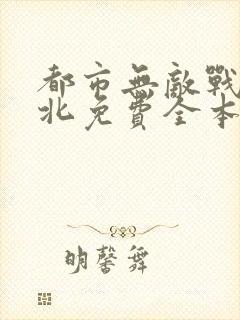 都市無敵戰
北免費全本
明馨舞